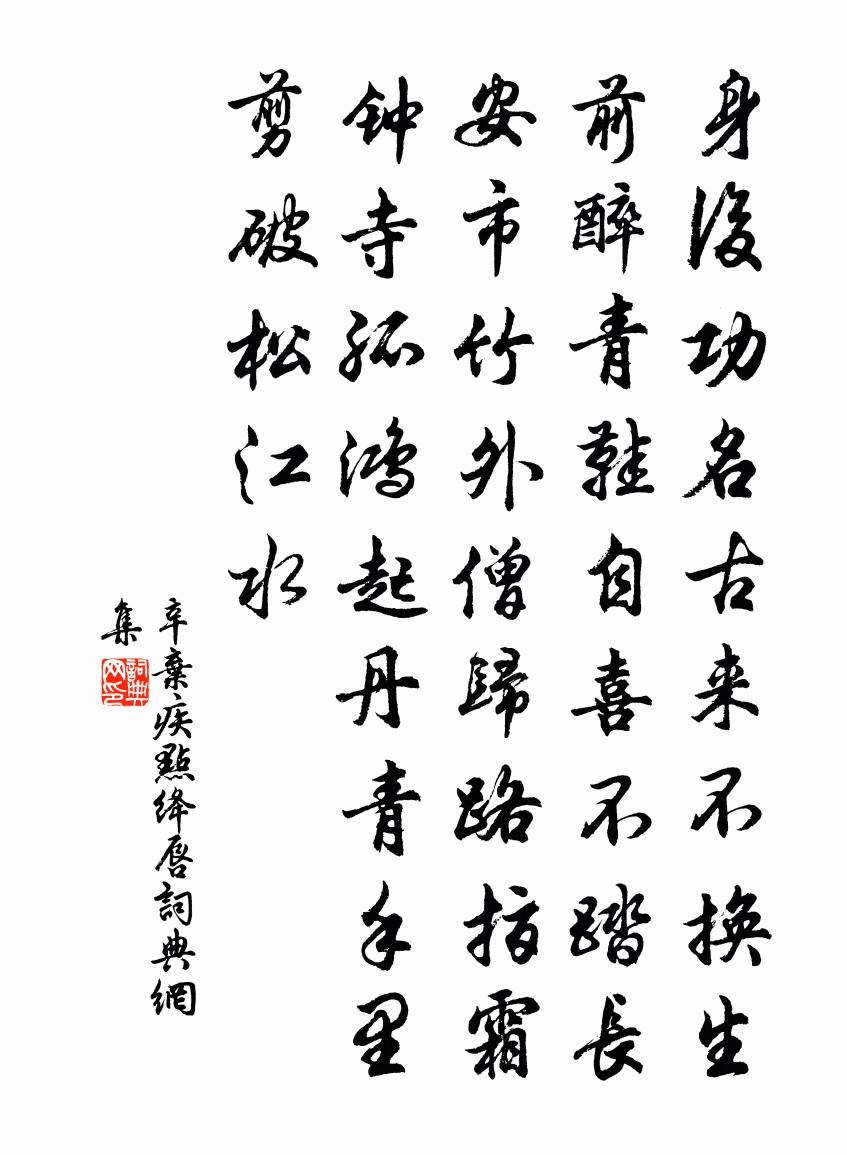 身後功名古来不換生
前醉青鞋自喜不踏長
安市竹外僧歸路指霜
钟寺孤鸿起丹青手里
剪破松江水
辛棄疾點绛唇詞典網
集
詞典
网印